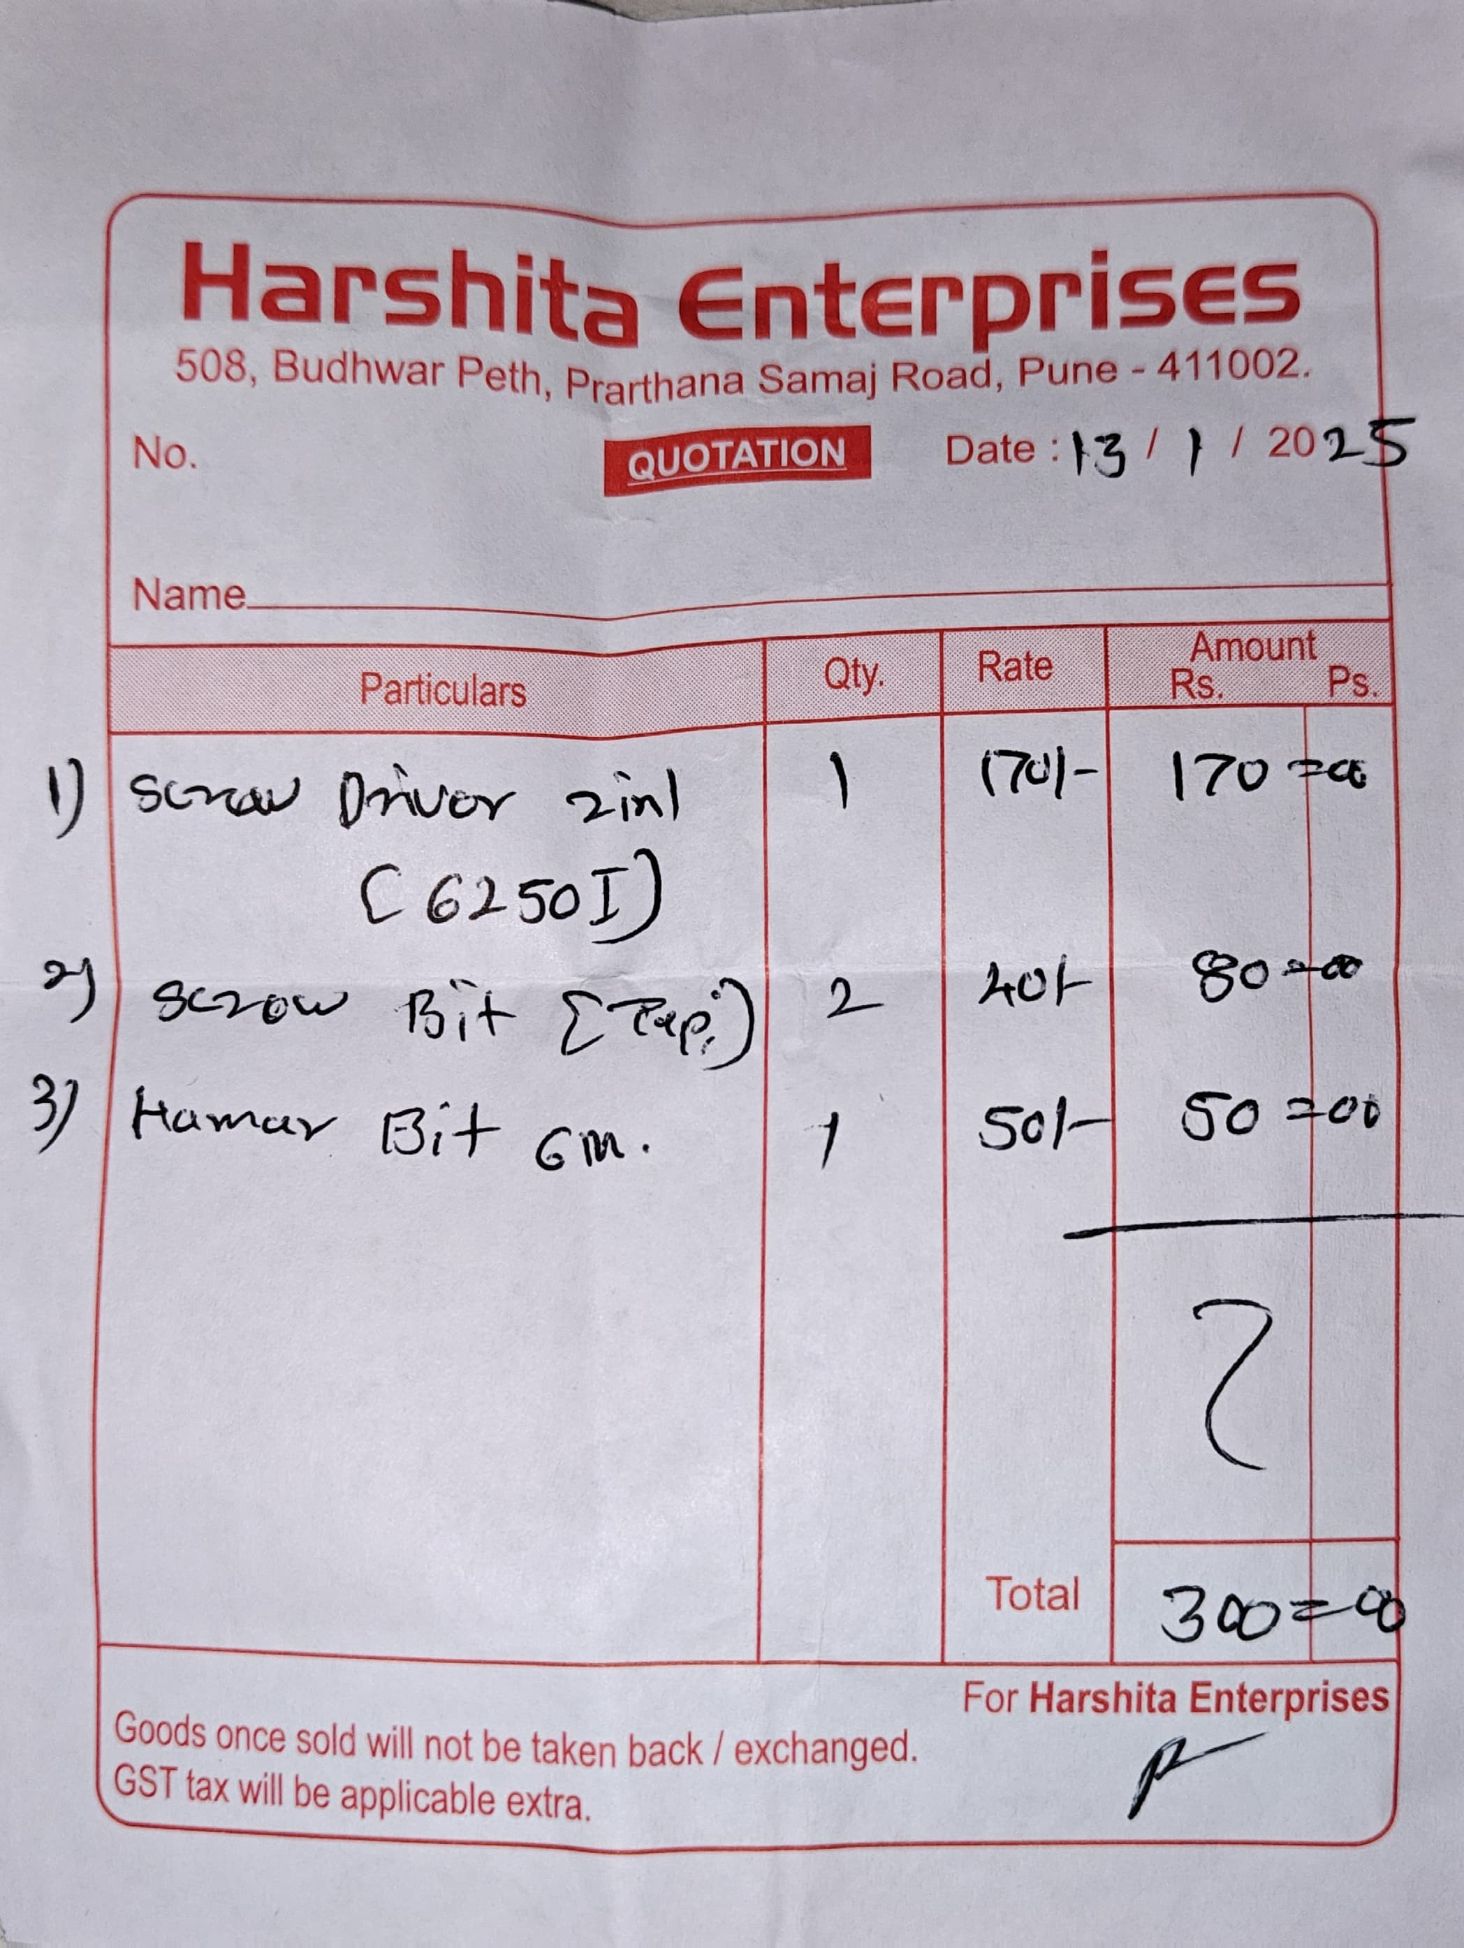 Harshita Enterprises
508, Budhwar Peth, Prarthana Samaj Road, Pune - 411002.
No. QUOTATION Date : 13 / 1 / 2025
Name
Particulars Qty. Rate Amount Rs. Ps.
1) Screw Driver 2in1 1 170/- 170=00
(6250I)
2) Screw Bit 2 40/- 80=00
3) Hamar Bit 6m. 1 50/- 50=00
Total 300=00
For Harshita Enterprises
Goods once sold will not be taken back / exchanged.
GST tax will be applicable extra.